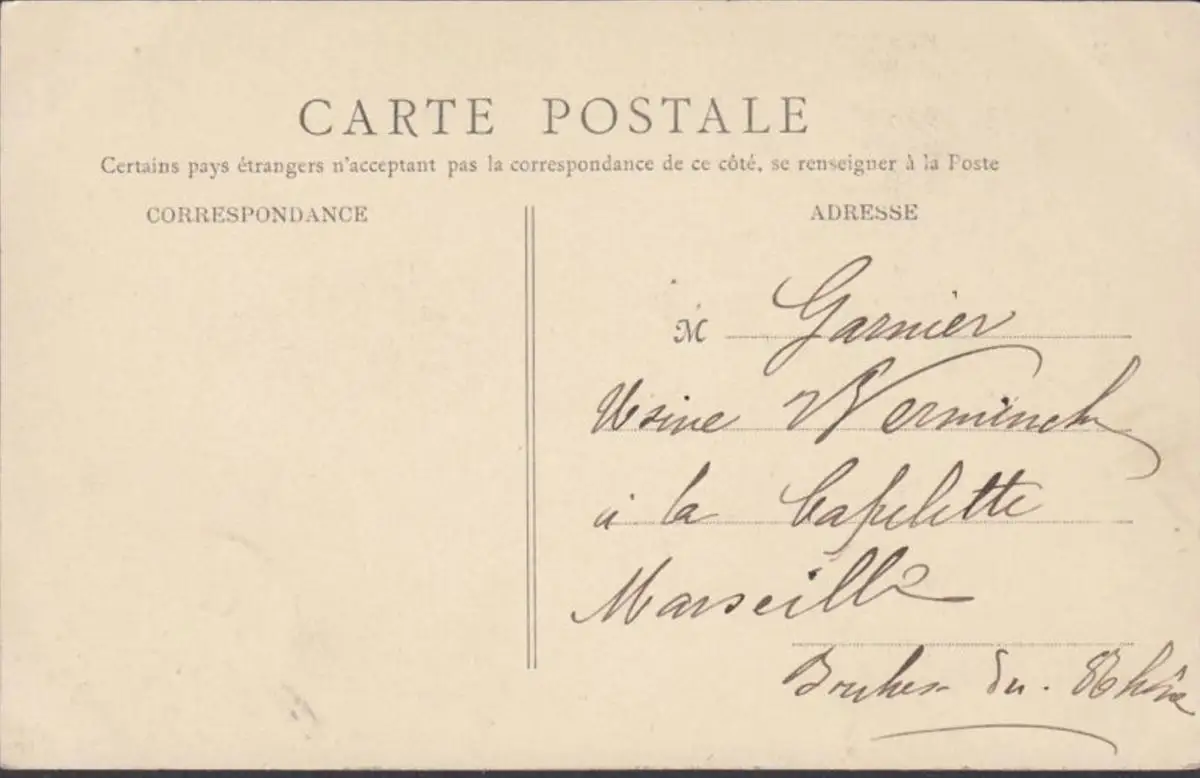 CARTE POSTALE
Certains pays étrangers n'acceptant pas la correspondance de ce côté, se renseigner à la Poste
CORRESPONDANCE
ADRESSE
M Garnier
Usine Verminck
à la Capelette
Marseille
Bouches-du-Rhône